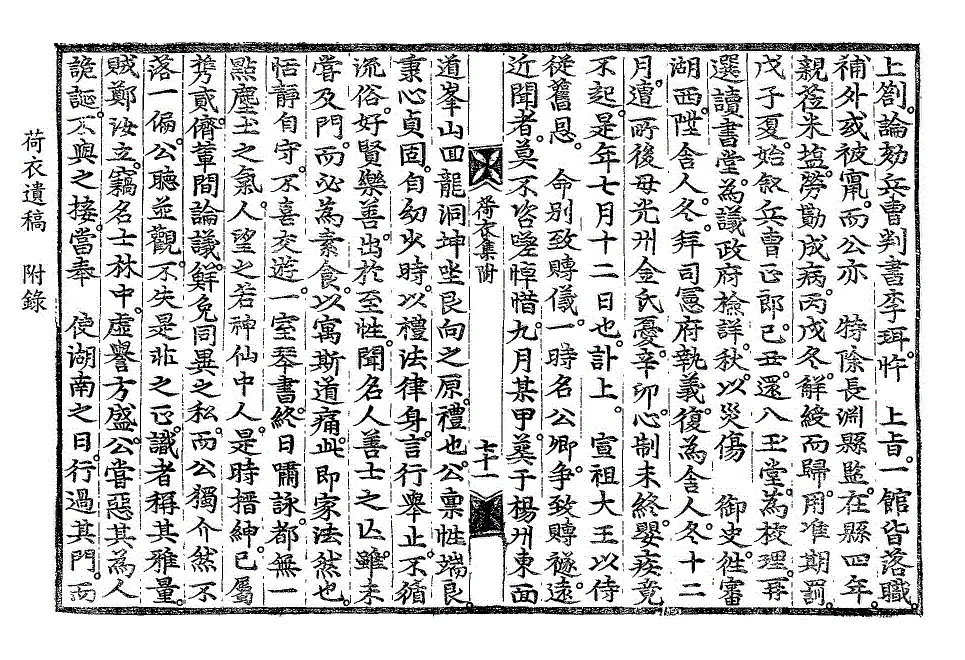 上箚。論劾兵曹判書李珥忤　上旨。一館皆落職。
補外或被竄。而公亦　特除長淵縣監。在縣四年。
親莅米塩。勞勩成病。丙戌冬。解綬而歸。用准期罰。
戊子夏。始叙兵曹正郎。己丑。還入玉堂。爲校理。再
選讀書堂。爲議政府檢詳。秋。以災傷　御史。徃審
湖西。陞舍人。冬。拜司憲府執義。復爲舍人。冬十二
月。遭所後母光州金氏憂。辛卯。心制未終。嬰疾竟
不起。是年七月十二日也。訃上。　宣祖大王以侍
從舊恩。　命別致賻儀。一時名公卿。爭致賻襚。遠
近聞者。莫不咨嗟悼惜。九月某甲。葬于楊州東面
荷衣集附　七十一
道峯山回龍洞坤坐艮向之原。禮也。公禀性端良。
秉心貞固。自幼少時。以禮法律身。言行擧止。不循
流俗。好賢樂善。出於至性。聞名人善士之亡。雖未
嘗及門。而必爲素食。以寓斯道痛。此卽家法然也。
恬靜自守。不喜交遊。一室琴書。終日嘯詠。都無一
點塵土之氣。人望之若神仙中人。是時搢紳。已屬
携貳。儕輩間論議。鮮免同異之私。而公獨介然不
落一偏。公聽並觀。不失是非之正。識者稱其雅量。
賊鄭汝立。竊名士林中。虛譽方盛。公嘗惡其爲人
詭誕。不與之接。當奉　使湖南之日。行過其門。而
荷衣遺稿　附錄